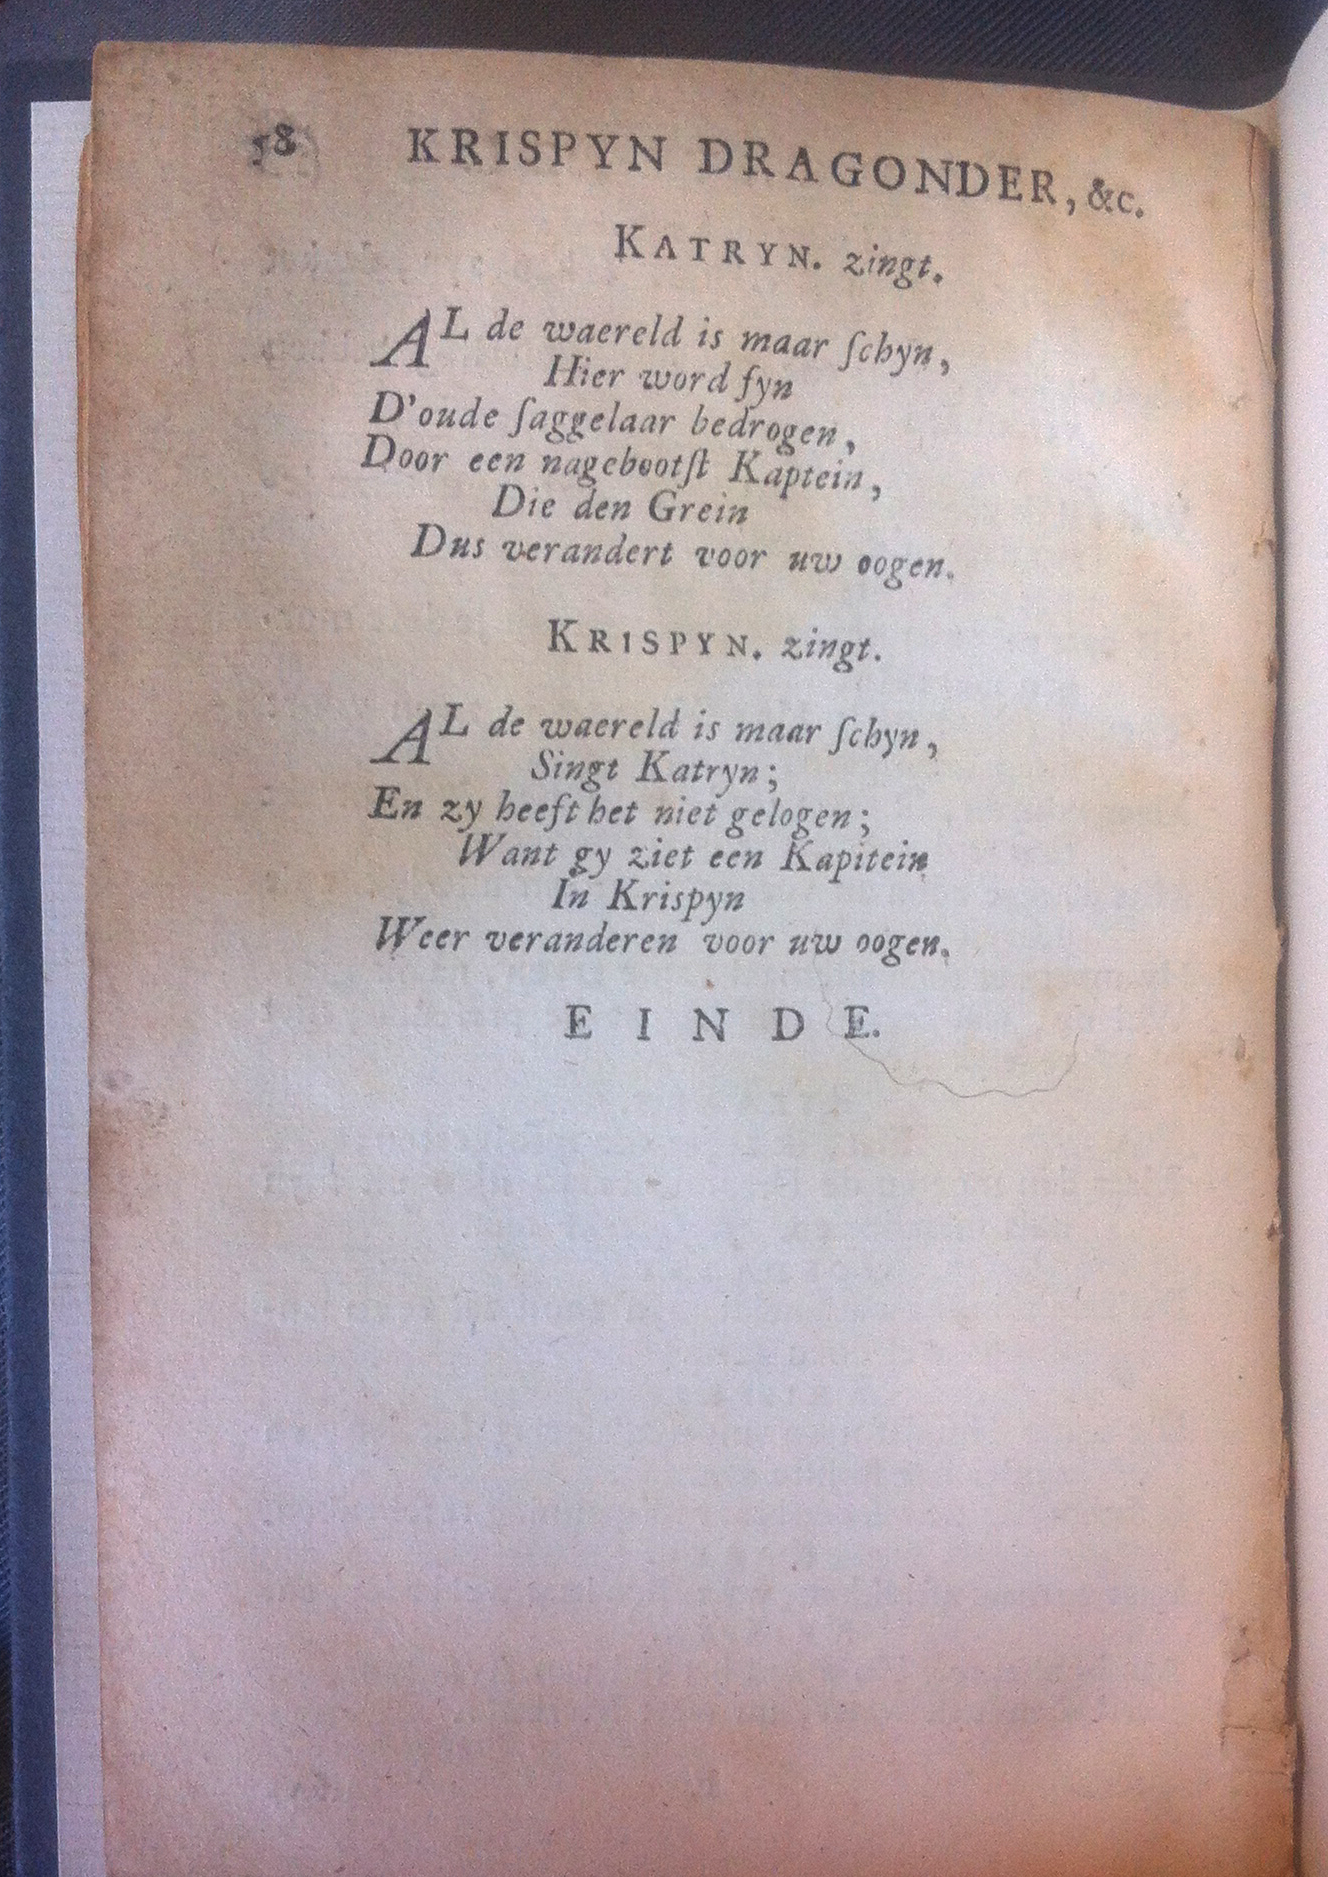 58 KRISPYN DRAGONDER, &c.
KATRYN. zingt.
AL de waereld is maar ſchyn,
Hier word fyn
D'oude ſaggelaar bedrogen,
Door een nagebootſt Kaptein,
Die den Grein
Dus verandert voor uw oogen.
KRISPYN. zingt.
AL de waereld is maar ſchyn,
Singt Katryn;
En zy heeft het niet gelogen;
Want gy ziet een Kapitein
In Krispyn
Weer veranderen voor uw oogen.
EINDE.